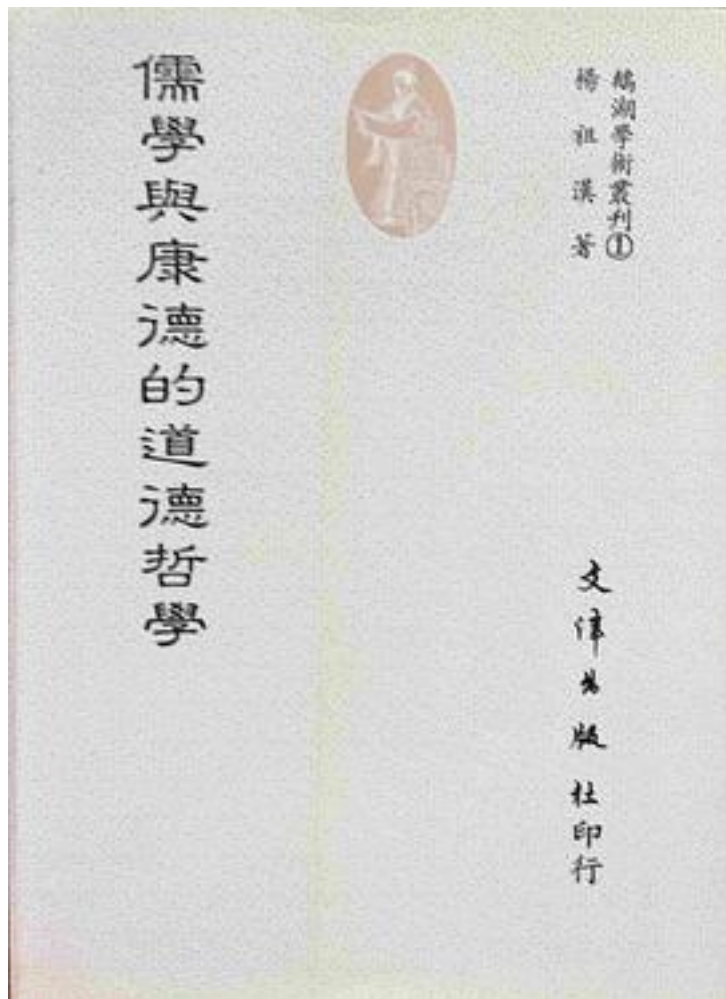 鵝湖學術叢刊①
楊祖漢著
儒學與康德的道德哲學
文津出版社印行